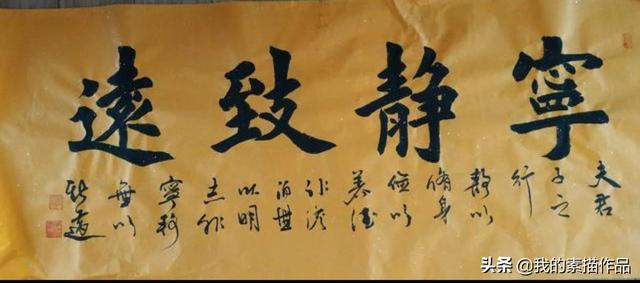 寧静致遠
夫君
子之
行
静以
脩身
儉以
養德
非澹
泊無
以明
志非
寧静
無以
致遠
头条 @我的素描作品